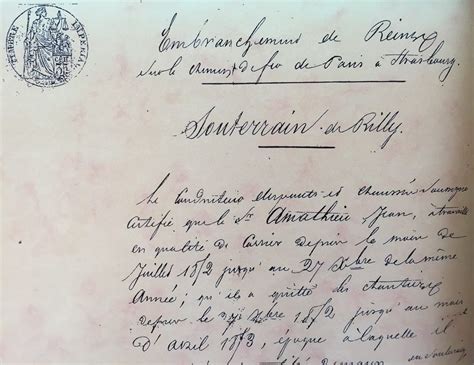 TIMBRE IMPERIAL
Embranchement de Reims
sur le chemin de fer de Paris à Strasbourg.
Souterrain de Rilly.
Le Conducteur des ponts et chaussées soussigné
certifie que le Sr Amathieu Jean, a travaillé
en qualité de Carrier depuis le mois de
Juillet 1852 jusqu'au 27 Xbre de la même
Année; qu'il a quitté les chantiers
depuis le Xbre 1852 jusqu'au mois
d'avril 1853, époque à laquelle il